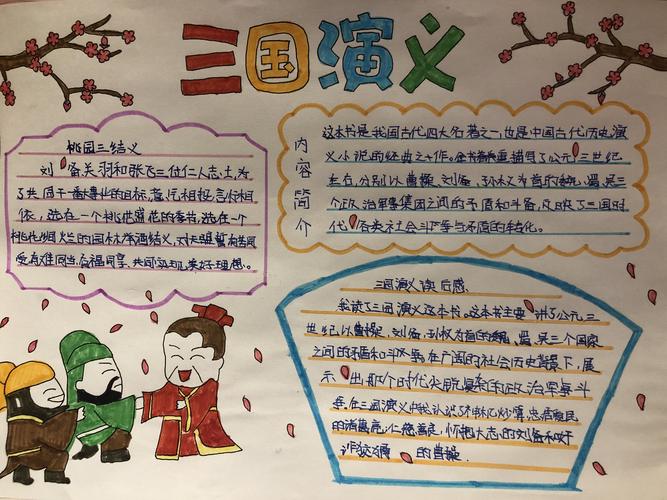 三国演义
桃园三结义
刘备关羽和张飞三位仁人志士,为
了共同干一番事业的目标,意气相投,言行相
依,选在一个桃花盛花的季节,选在一个
桃花烂的园林,举酒结义,对天盟誓,有苦同
受,有难同当,有福同享,共同实现美好理想。
内容简介
这本书是我国古代四大名著之一,也是中国古代历史演
义小说的经典之作。全书描写了公元三世纪
左右,分别以曹操、刘备、孙权为首的魏、蜀、吴三
个政治军事集团之间的矛盾和斗争,反映了三国时
代各类社会斗争与矛盾的转化。
三国演义读后感
我读了三国演义这本书。这本书主要讲了公元三
世纪以曹操、刘备、孙权为首的魏、蜀、吴三个国家
之间的矛盾和斗争,在广阔的社会历史背景下,展
示出那个时代尖锐复杂的政治军事斗
争,在三国演义中我认识了神机妙算,忠君爱民
的诸葛亮,仁慈 怀把大志的刘备和奸
诈狡 的曹操